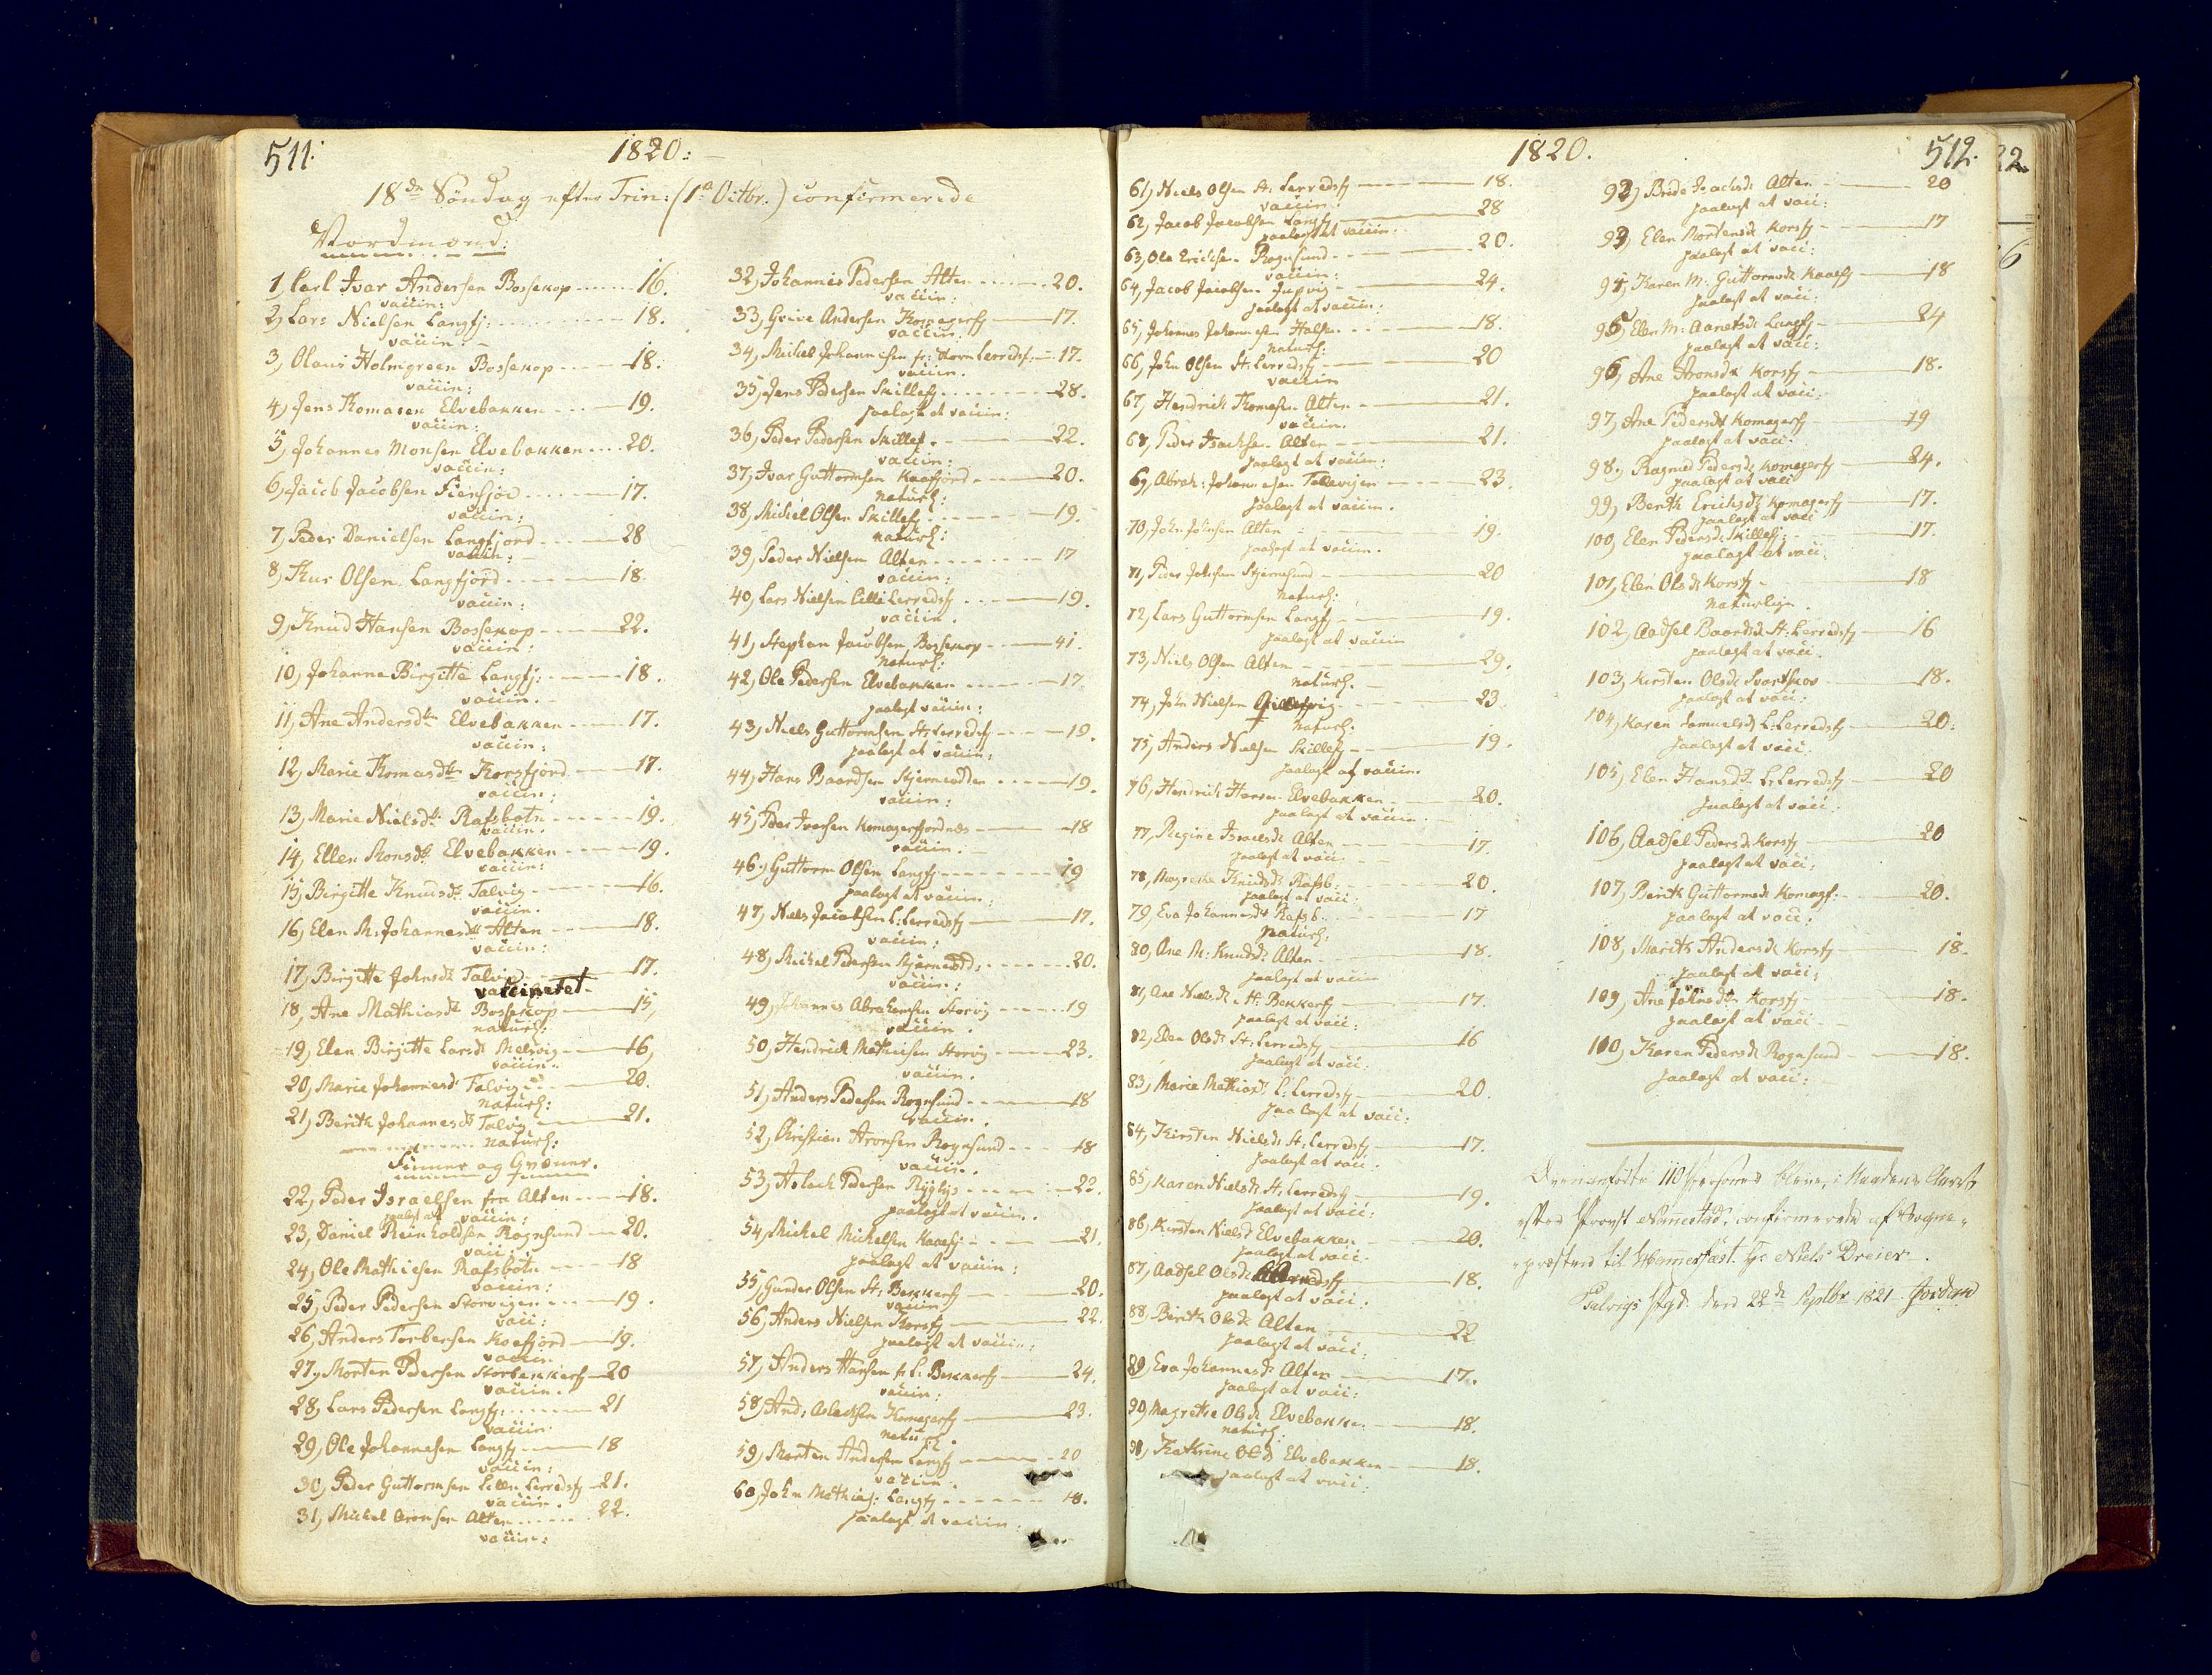 511.
1820:
18de Söndag efter Trin: (1te Octbr.) confirmerede
Nordmænd:
1, Carl Ivar Andersen Bossekop 16.
vaccin:
2, Lars Nielsen Langfj: 18.
vaccin:
3, Olaus Holmgreen Bossekop 18.
vaccin:
4, Jens Thomasen Elvebakken 19.
vaccin:
5, Johannes Monsen Elvebakken 20.
vaccin:
6, Jacob Jacobsen 17.
vaccin:
7, Peder Danielsen Langfjord 28
vaccin:
8, Thur Olsen Langfjord 18.
vaccin:
9, Knud Hansen Bossekop 22.
vaccin:
10, Johanne Birgitte Langfj: 18.
vaccin.
11, Ane Andersdtr Elvebakken 17.
vaccin:
12, Marie Thomasdtr Korsfjord 17.
vaccin:
13, Marie Nielsdtr Rafsbotn 19.
vaccin.
14, Ellen Monsdtr Elvebakken 19.
vaccin:
15, Birgitte Knudsdr Talvig 16.
vaccin.
16, Elen M: Johannesdtr Alten 18.
vaccin:
17, Birgitte Johnsdr Talvig 17.
vaccinetet
18, Ane Mathiasdr Bossekop 15,
naturl:
19, Elen Birgitte Larsdr Melsvig 16,
vaccin.
20, Marie Johannesdr Talvig 20.
naturl:
21, Berith Johannesdr Talvig 21.
naturl:
Finner og Qvæner.
22, Peder Israelsen fra Alten 18.
paalagt at vaccin:
23, Daniel Reinholdsen Rognsund 20.
vacc:
24, Ole Mathisen Rafsbotn 18
vaccin:
25, Peder Pedersen Storvigen 19.
vacc:
26, Anders Torbersen Koefjord 19.
vaccin
27, Morten Pedersen Storbekkerfj 20
vaccin.
28, Lars Pedersen Langfj: 21
vaccin
29, Ole Johannesen Langfj 18
vaccin:
30, Peder Guttormsen Lille Lerredsfj 21.
vaccin.
31, Mickel Aronsen Alten 22.
vaccin:
32, Johannes Pedersen Alten 20.
vaccin:
33, Greive Andersen Komagerfj 17.
vaccin:
34, Mickel Johannesen fr: Store Lerredsf: 17.
vaccin.
35, Jens Pedersen Skillefj 28.
paalagt at vaccin:
36, Peder Pedersen Skillef. 22.
vaccin:
37, Ivar Guttormsen Kaafjord 20.
naturl:
38, Mickel Olsen Skillefj 19.
naturl:
39, Peder Nielsen Alten 17
vaccin:
40, Lars Nielsen Lille Lerredsfj 19.
vaccin.
41, Stephan Jacobsen Bossekop 41.
naturl:
42, Ole Pedersen Elvebakken 17
paalagt vaccin:
43, Niels Guttormsen St: Lerredsfj 19.
paalagt at vaccin:
44, Hans Baardsen Stjernodden 19.
vaccin:
45, Peder Ivarsen Komagerfjordnæs 18
vaccin.
46, Guttorm Olsen Langfj 19
paalagt at vaccin:
47, Niels Jacobsen L: Lerredsfj 17.
vaccin:
48, Mickel Pedersen Stjernodd: 20.
vaccin:
49, Johannes Abrahamsen Storvig 19
vaccin.
50, Hendrick Mathisen Storvig 23.
vaccin.
51, Anders Pedersen Rognsund 18
vaccin.
52, Christian Aronsen Rognsund 18
vaccin.
53, Aslach Pedersen 22.
paalagt at vaccin.
54, Mickel Mickelsen Kaaefj: 21.
paalagt at vaccin:
55, Gunder Olsen St: Bekkerfj 20.
vaccin
56, Anders Nielsen Korsfj 22.
paalagt at vaccin:
57, Anders Hansen fr L: Bekkerfj 24.
vaccin:
58, And: Aslachsen Komagerfj 23.
naturl.
59, Morten Andersen Langfj 20
vaccin.
60, John Mathias: Langfj 18.
paalagt at vaccin.
1820.
512.
61, Niels Olsen St. Lerredsfj 18.
vaccin:
62, Jacob Jacobsen Langfj 28
paalagt at vaccin:
63, Ole Erichsen Rognsund 20.
vaccin:
64, Jacob Jacobsen 24.
paalagt at vaccin:
65, Johannes Johannesen 18.
naturl:
66, John Olsen St: Lerredsfj 20
vaccin
67, Hendrick Thomasen Alten 21.
vaccin.
68, Peder Isachsen Alten 21.
paalagt at vaccin:
69, Abrah: Johannesen Talevigen 23.
paalagt at vaccin.
70, John Johnsen Alten 19.
paalagt at vaccin.
71, Peder Johnsen Stjernesund 20
naturl:
72, Lars Guttormsen Langfj 19.
paalagt at vaccin
73, Niels Olsen Alten 29.
naturl.
74, John Nielsen 23.
naturl.
75, Anders Nielsen Skillefj 19.
paalagt at vaccin.
76, Hendrich Hansen Elvebakken 20.
paalagt at vaccin
77, Regine Israelsdr Alten 17
paalagt at vacc:
78, Magrethe Knudsdr Rafsb: 20.
paalagt at vacc:
79, Eva Johannesdr Rafsb: 17
naturl:
80, Ane M: Knudsdr Alten 18.
paalagt at vaccin
81, Ane Nielsdr St. Bekkerfj 17.
paalagt at vacc:
82, Elen Olsdr St: Lerredsfj 16
paalagt at vacc:
83, Marie Mathiasdr L: Lerredsfj 20.
paalagt at vacc:
84, Kirsten Nielsdr St: Lerredsfj 17.
paalagt at vacc.
85, Karen Nielsdr St: Lerredsfj 19.
paalagt at vacc:
86, Kirsten Nielsd Elvebakken 20.
paalagt at vacc.
87, Aadsel Olsdr 18.
paalagt at vacc:
88, Berith Olsdr Alten 22
paalagt at vacc:
89, Eva Johannesdr Alten 17.
paalagt at vacc:
90, Magrethe Olsdr Elvebakken 18.
naturl:
91, Kathrine Olsdr Elvebakken 18.
paalagt at vacc:
92, Brede Isachsdr Alten 20
paalagt at vacc:
93, Elen Mortensdr Korsfj 17
paalagt at vacc:
94, Karen M: Guttormsdr Kaaefj 18
paalagt at vacc:
95, Elen M: Aanetsdr Langfj 24
paalagt at vacc:
96, Ane Aronsdr Korsfj 18.
paalagt at vacc:
97, Ane Pedersdr Komagerfj 19
paalagt at vacc:
98, Ragned Pedersdr Komagerfj 24.
paalagt at vacc
99, Berith Erichsdr Komagerfj 17.
paalagt at vacc
100, Elen Pedersdr Skillefj: 17.
paalagt at vacc:
101, Elen Olsdr Korsfj 18
naturlige.
102, Aadsel Baardsdr St: Lerredsfj 16
paalagt at vacc.
103, Kirsten Olsdr Svartskov 18.
paalagt at vacc:
104, Karen Samuelsdr L: Lerredsfj 20:
paalagt at vacc.
105, Elen Hansdr L: Lerredsfj 20
paalagt at vacc.
106, Aadsel Pedersdr Korsfj 20
paalagt at vacc:
107, Berith Guttormsdr Komagf: 20.
paalagt at vacc:
108, Marith Andersdr Korsfj 18.
paalagt at vacc:
109, Ane Johnsdtr Korsfj 18.
paalagt at vacc
110, Karen Pedersdr Rognsund 18.
paalagt at vacc:
Ovenanførte 110 Personer bleve, i Naadens Aaret
efter Provst Normestad, confirmerede af Sogne-
præsten til Hamerfæst Hr Niels Dreier.
Talvigs Pgd. den 22de Septbr 1821. Jordan